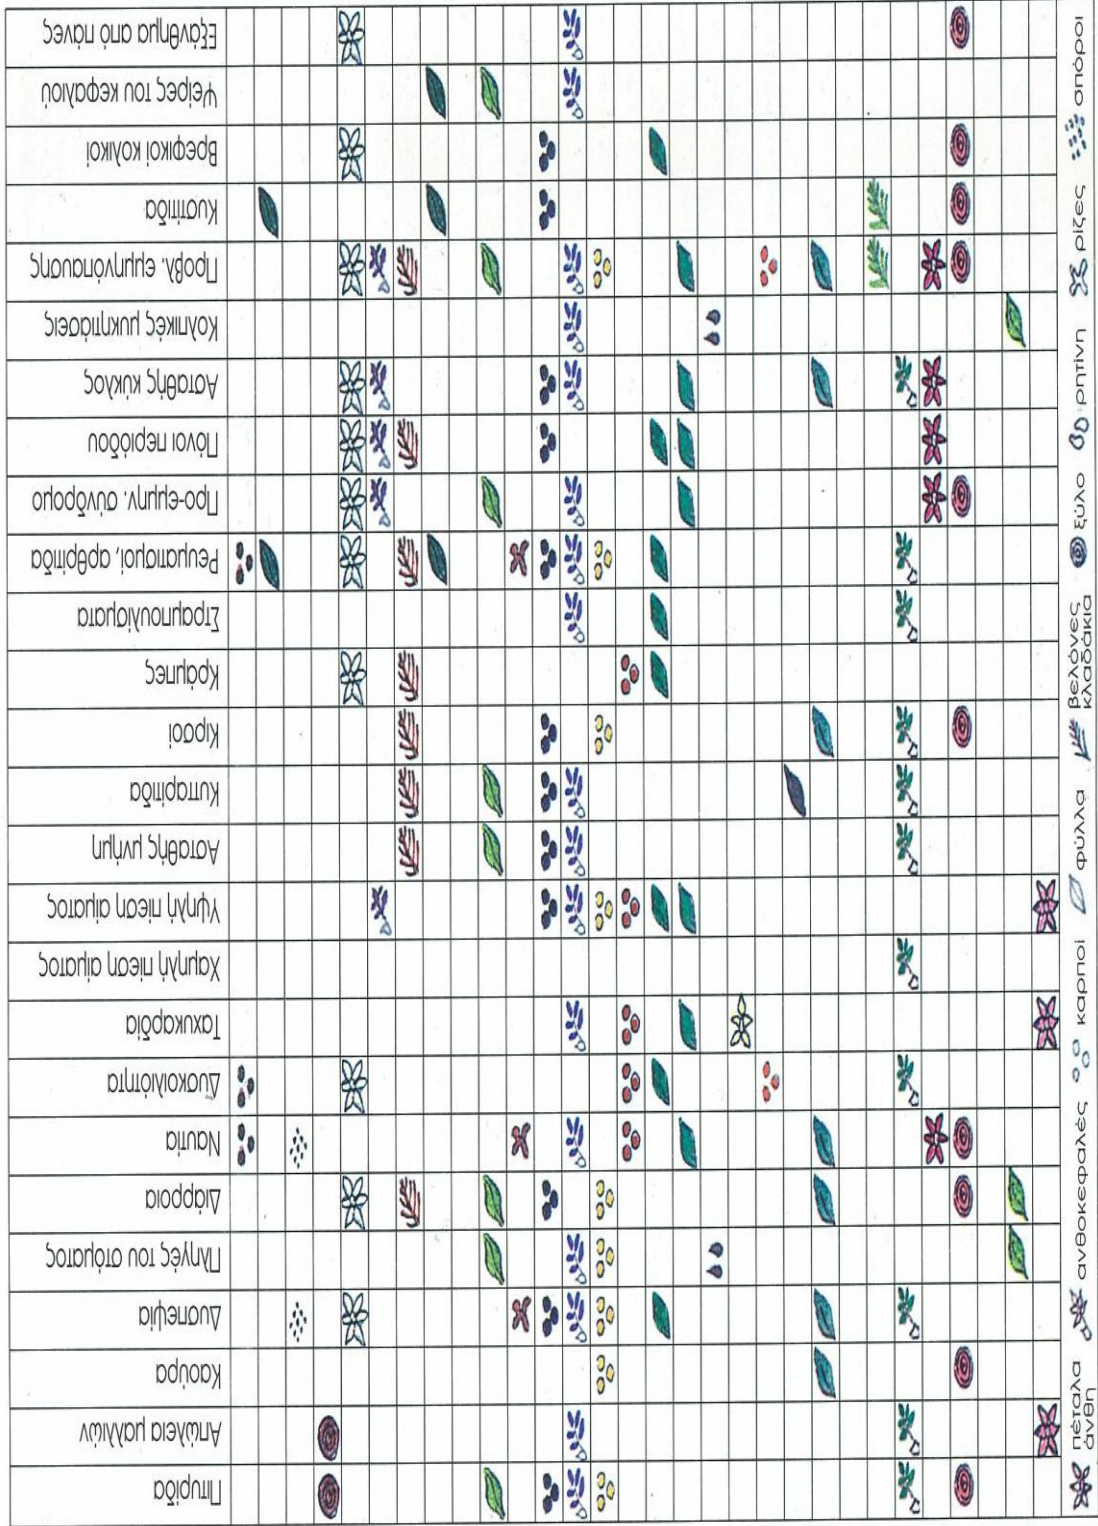 Εξάνθημα από πάνες
Ψείρες του κεφαλιού
Βρεφικοί κολικοί
Κυστίτιδα
Προβλ. εμμηνόπαυσης
Κολπικές μυκητιάσεις
Ασταθής κύκλος
Πόνοι περιόδου
Προ-εμμην. σύνδρομο
Ρευματισμοί, αρθρίτιδα
Στραμπουλίσματα
Κράμπες
Κιρσοί
Κυτταρίτιδα
Ασταθής μνήμη
Υψηλή πίεση αίματος
Χαμηλή πίεση αίματος
Ταχυκαρδία
Δυσκοιλιότητα
Ναυτία
Διάρροια
Πληγές του στόματος
Δυσπεψία
Καούρα
Απώλεια μαλλιών
Πιτυρίδα
πέταλα
άνθη
ανθοκεφαλές
καρποί
φύλλα
βελόνες
κλαδάκια
ξύλο
ρητίνη
ρίζες
σπόροι